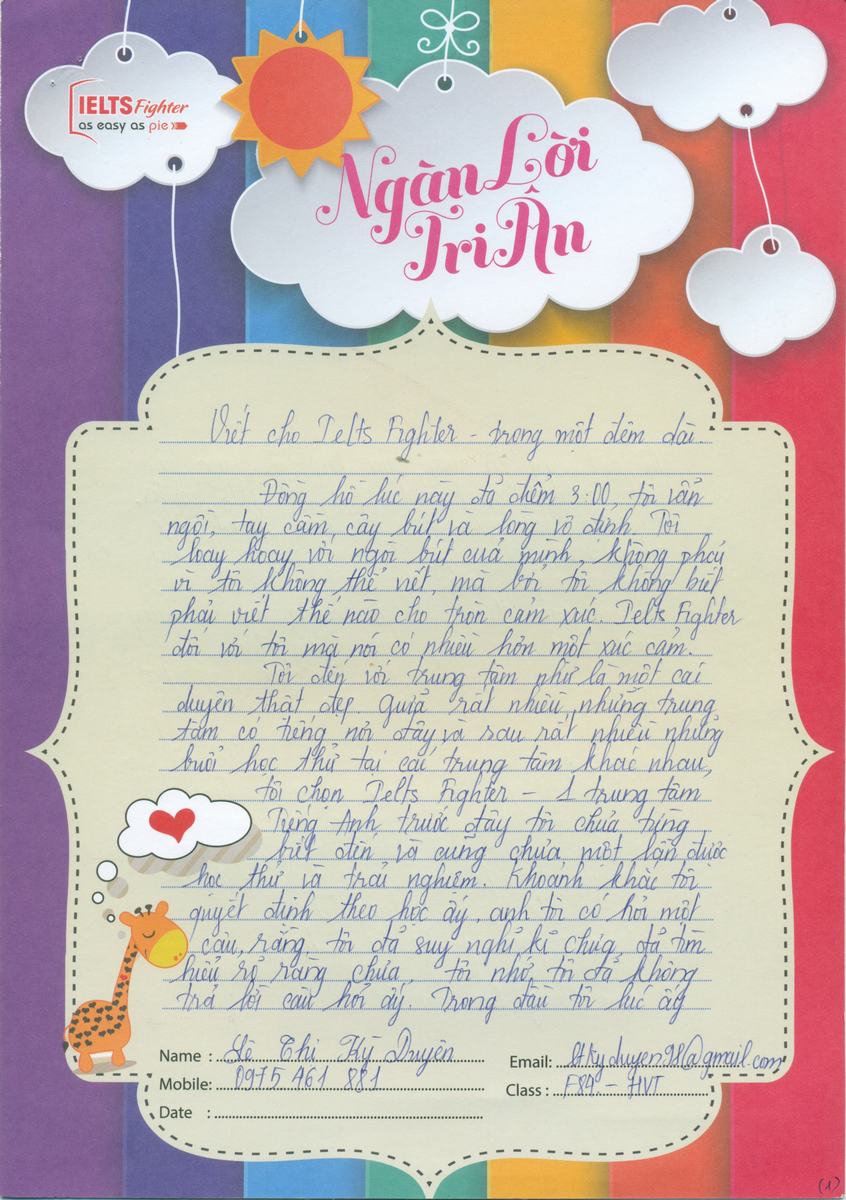 IELTS Fighter
as easy as pie
Ngàn Lời
Tri Ân
Viết cho Ielts Fighter - trong một đêm dài.
Đồng hồ lúc này đã điểm 3:00, tôi vẫn
ngồi, tay cầm cây bút và lòng vô định. Tôi
loay hoay với ngòi bút của mình, không phải
vì tôi không thể viết, mà bởi tôi không biết
phải viết thế nào cho tròn cảm xúc. Ielts Fighter
đối với tôi mà nói có nhiều hơn một xúc cảm.
Tôi đến với trung tâm như là một cái
duyên thật đẹp. Quả rất nhiều những trung
tâm có tiếng nơi đây, và sau rất nhiều những
buổi học thử tại các trung tâm khác nhau,
tôi chọn Ielts Fighter - 1 trung tâm
Tiếng Anh trước đây tôi chưa từng
biết đến và cũng chưa một lần được
học thử và trải nghiệm. Khoảnh khắc tôi
quyết định theo học ấy, anh tôi có hỏi một
câu, rằng, tôi đã suy nghĩ kĩ chưa, đã tìm
hiểu rõ ràng chưa, tôi nhớ tôi đã không
trả lời câu hỏi ấy. Trong đầu tôi lúc ấy
Name : Lê Thị Kỳ Duyên
Email: ltkyduyen98@gmail.com
Mobile: 0975 461 881
Class : F84 - HVT
Date :
(1)